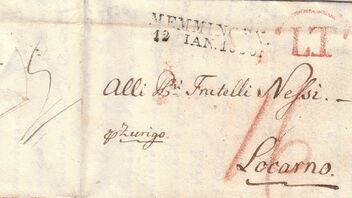 MEMMINGEN
12 IAN.
LT
Alli Si: Fratelli Nessi. –
p Zurigo
Locarno.